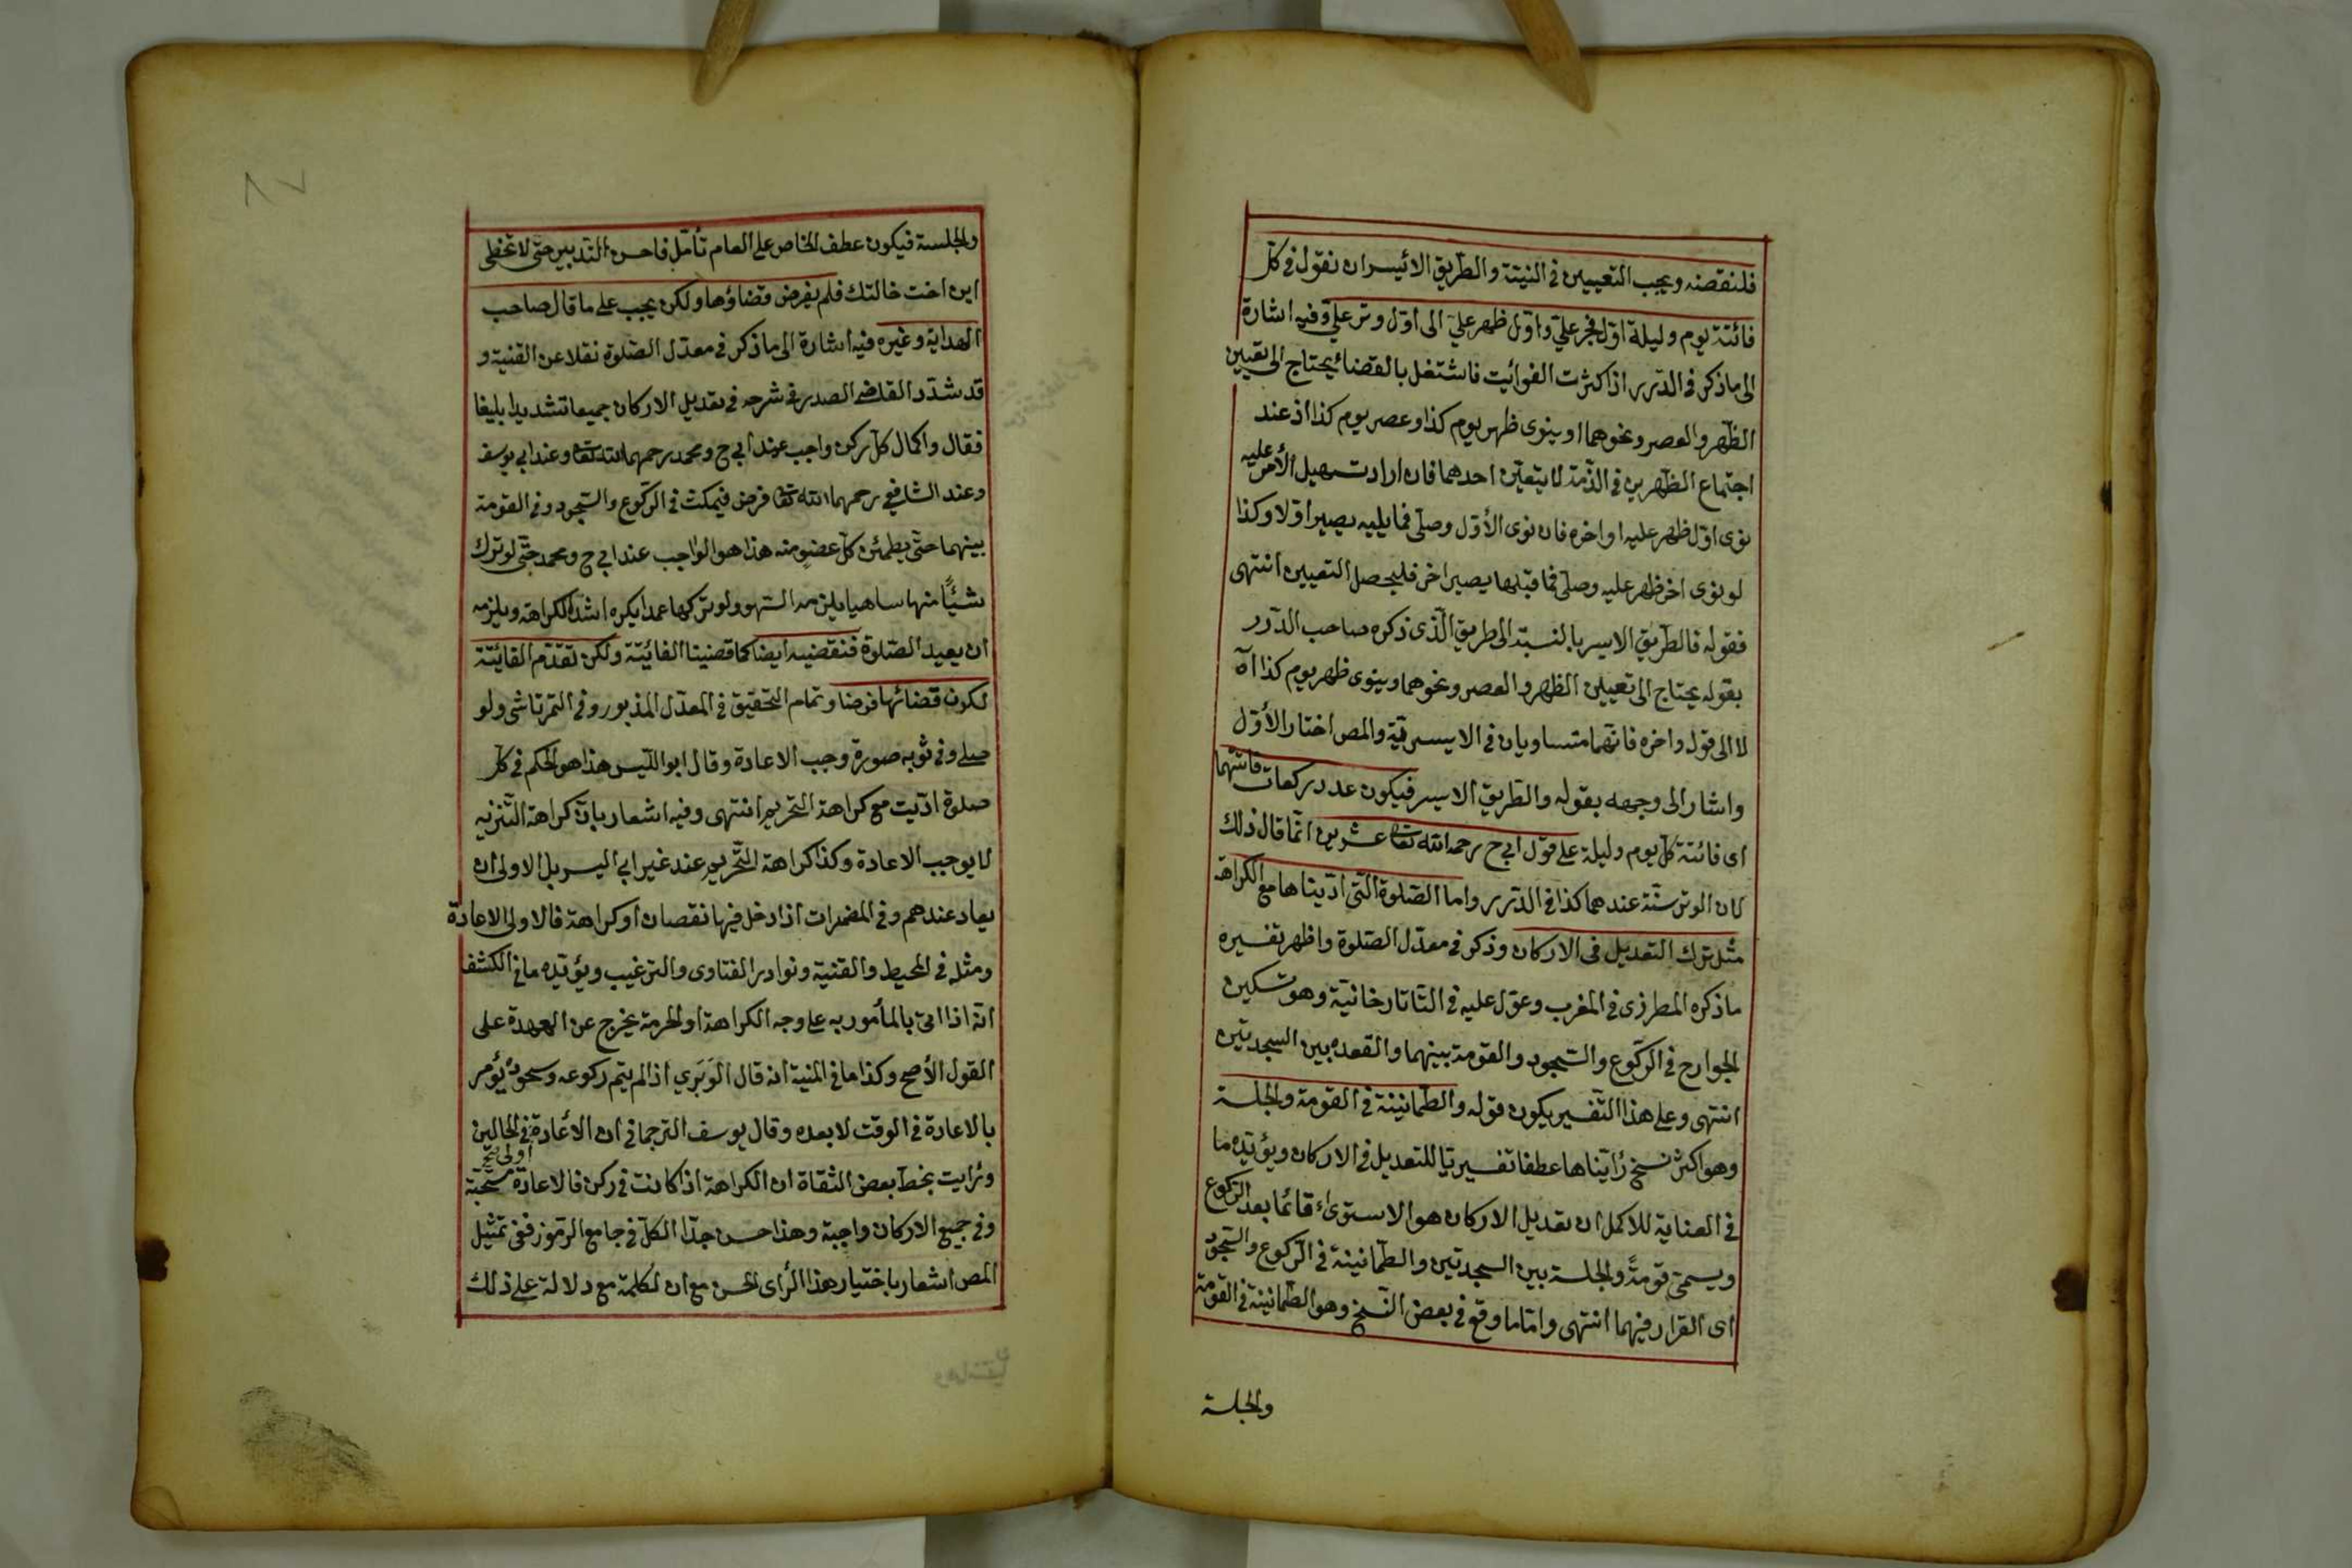 فلنقضه ويجب التعيين في النيتة والطريق الائيسر ان نقول في كل
فائتة يوم وليلة اول فجر علي واول ظهر علي الى اول وتر علي وفيه اشارة
الى ماذكر في الدرر اذا كثرت الفوائت فاشتغل بالقضاء يحتاج الى تعيين
الظهر والعصر ونحوهما او ينوى ظهر يوم كذا وعصر يوم كذا اذ عند
اجتماع الظهرين في الذمة لا يتعين احدهما فان اراد تسهيل الأمر عليه
نوى اول ظهر عليه او اخره فان نوى الأول وصلى فما يليه يصير اولا وكذا
لو نوى اخر ظهر عليه وصلى فما قبلها يصير اخر فليحصل التعيين انتهى
فقوله فالطريق الايسر بالنسبة الى طريق الذى ذكره صاحب الدرر
بقوله يحتاج الى تعيين الظهر والعصر ونحوهما وينوى ظهر يوم كذا اه
لا الى قوله واخره فانهما متساويان في الايسرية والمص اختار الأول
واشار الى وجهه بقوله والطريق الايسر فيكون عدد ركعات فائتهما
اى فائتة كل يوم وليلة على قول ابي ح رحمه الله تعا عشرين انما قال ذلك
لان الوتر سنة عندهما كذا في الدرر واما الصلوة التى ادّيناها مع الكراهة
مثل ترك التعديل في الاركان وذكر في معدل الصلوة واظهر تفسيره
ماذكره المطرزى في المغرب وعول عليه في التاتارخانية وهو تسكين
الجوارح في الركوع والسجود والقومة بينهما والقعده بين السجدتين
انتهى وعلى هذا التفسير يكون قوله والطمانينة في القومة والجلسة
وهو اكثر نسخ رأيناها عطفا تفسيريا للتعديل في الاركان ويؤيده ما
في العناية للاكمل ان تعديل الاركان هو الاستواء قائما بعد الركوع
ويسمى قومة والجلسة بين السجدتين والطمانينة في الركوع والسجود
اى القرار فيهما انتهى واما ما وقع في بعض النسخ وهو الطمانينة في القومة
والجلسة
والجلسة فيكون عطف الخاص على العام تأمل فاحسن التدبير حتى لا تخطى
ابن اخت خالتك فلم يفرض قضاؤها ولكن يجب على ماقال صاحب
الهداية وغيره فيه اشارة الى ماذكر في معدل الصلوة نقلا عن القنية و
قد شدد القاضى الصدر في شرحه في تعديل الاركان جميعا تشديدا بليغا
فقال واكمال كل ركن واجب عند ابي ح ومحمد رحمهما الله تعا وعند ابي يوسف
وعند الشافعي رحمهما الله تعا فرض فيمكث في الركوع والسجود وفي القومة
بينهما حتى يطمئن كل عضو منه هذا هو الواجب عند ابي ح ومحمد حتى لو ترك
شيئًا منها ساهيا يلزمه السهو ولو تركها عمدا يكره اشد الكراهة ويلزمه
ان يعيد الصلوة فنقضيه ايضا كما قضينا الفائتة ولكن تقدم الفائتة
لكون قضائها فرضا وتمام التحقيق في المعدل المذبور وفي التمرتاشى ولو
صلى وفي ثوبه صورة وجب الاعادة وقال ابو الليس هذا هو الحكم في كل
صلوة ادّيت مع كراهة التحريم انتهى وفيه اشعار بان كراهة التنزيه
لا يوجب الاعادة وكذا كراهة التحريم عند غير ابي اليسر بل الاولى ان
يعاد عندهم وفي المضمرات اذا دخل فيها نقصان او كراهة فالاولى الاعادة
ومثله في المحيط والقنية ونوادر الفتاوى والترغيب ويؤيده ما في الكشف
انه اذا اتى بالمأمور به على وجه الكراهة او الحرمة يخرج عن العهدة على
القول الأصح وكذا ما في المنية انه قال الوَبَري اذا لم يتم ركوعه وسجوده يؤمر
بالاعادة في الوقت لا بعده وقال يوسف الترجمانى ان الأعادة في الحالين
اولى صح
ورايت بخط بعض الثقاة ان الكراهة اذا كانت في ركن فالاعادة مستحبة
وفي جميع الاركان واجبة وهذا حسن جدا الكل في جامع الرموز ففى تمثيل
المص اشعار باختيار هذا الرأى الحسن مع ان لكلمة مع دلالة على ذلك